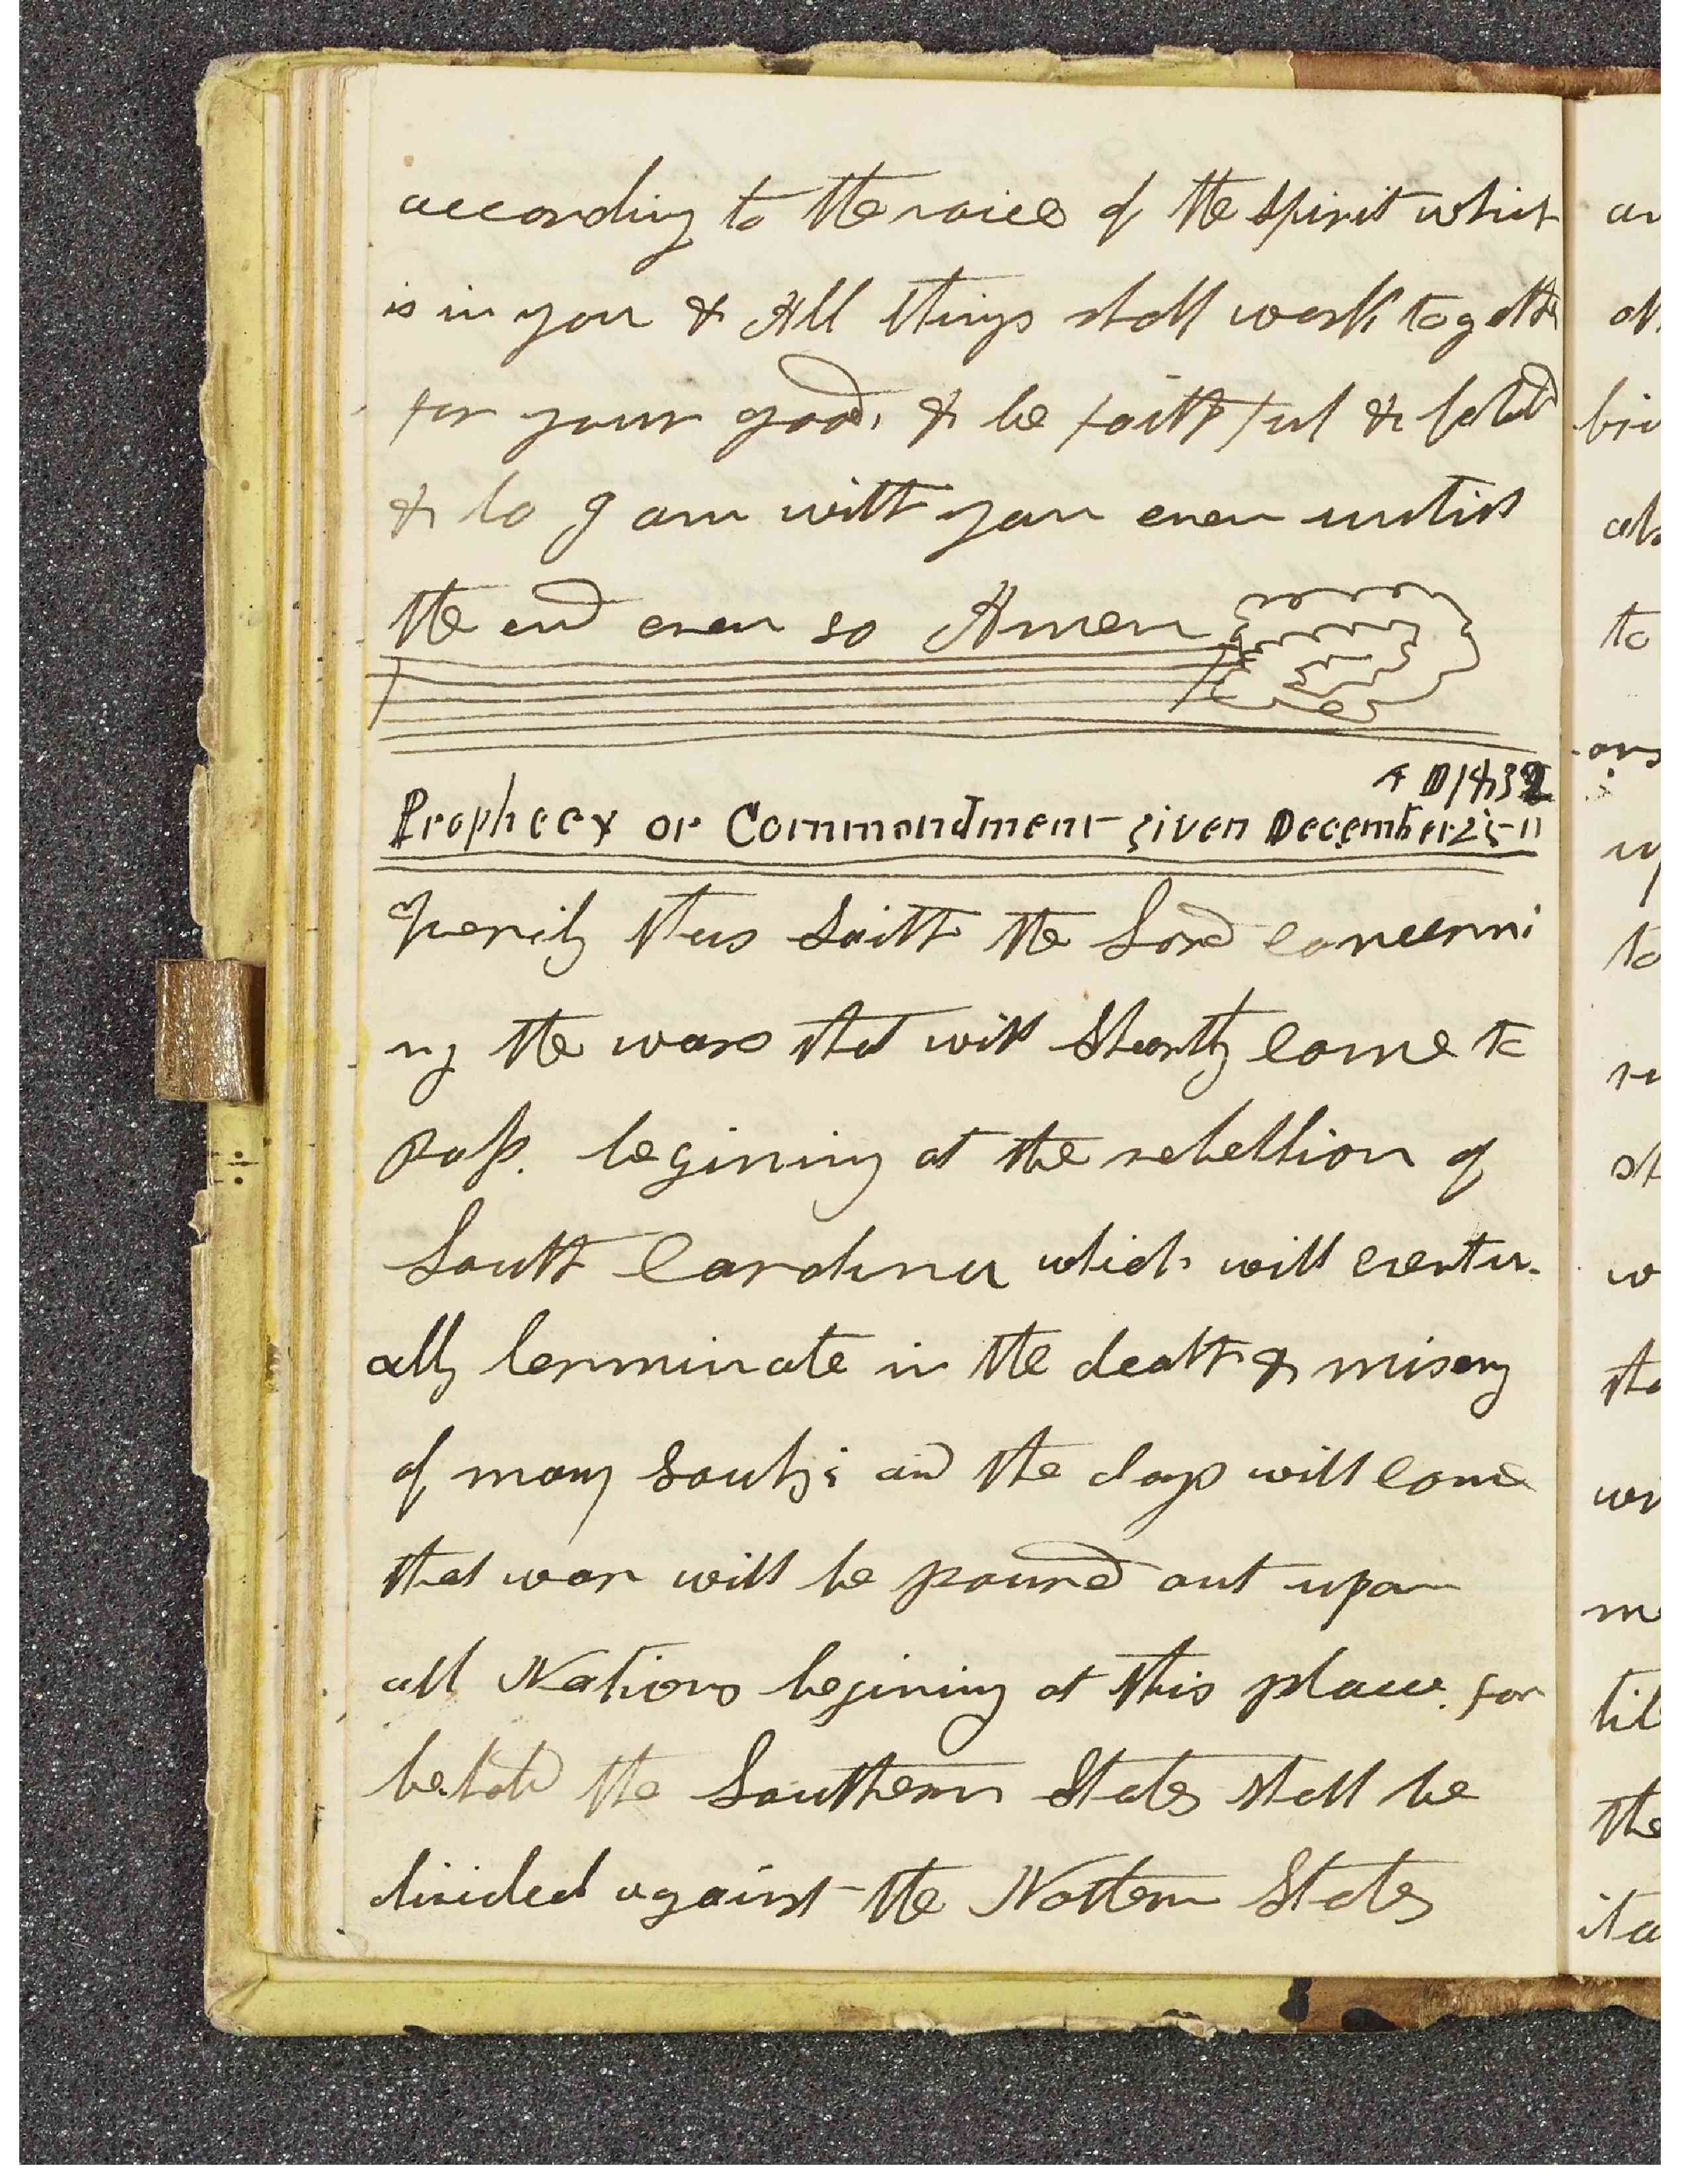 according to the voice of the spirit which
is in you & All things shall work togethe
for your good, & be faithful & behold
& lo I am with you even untill
the end even so Amen
A D 1832
Prophecy or Commandment given December 25th
Verily thus Saith the Lord concerni
ng the wars that will Shortly come to
pass. begining at the rebellion of
South Carolina which will eventu-
ally terminate in the death & misery
of many Souls; and the days will come
that war will be poured out upon
all Nations begining at this place. for
behold the Southern States shall be
divided against the Nothern States